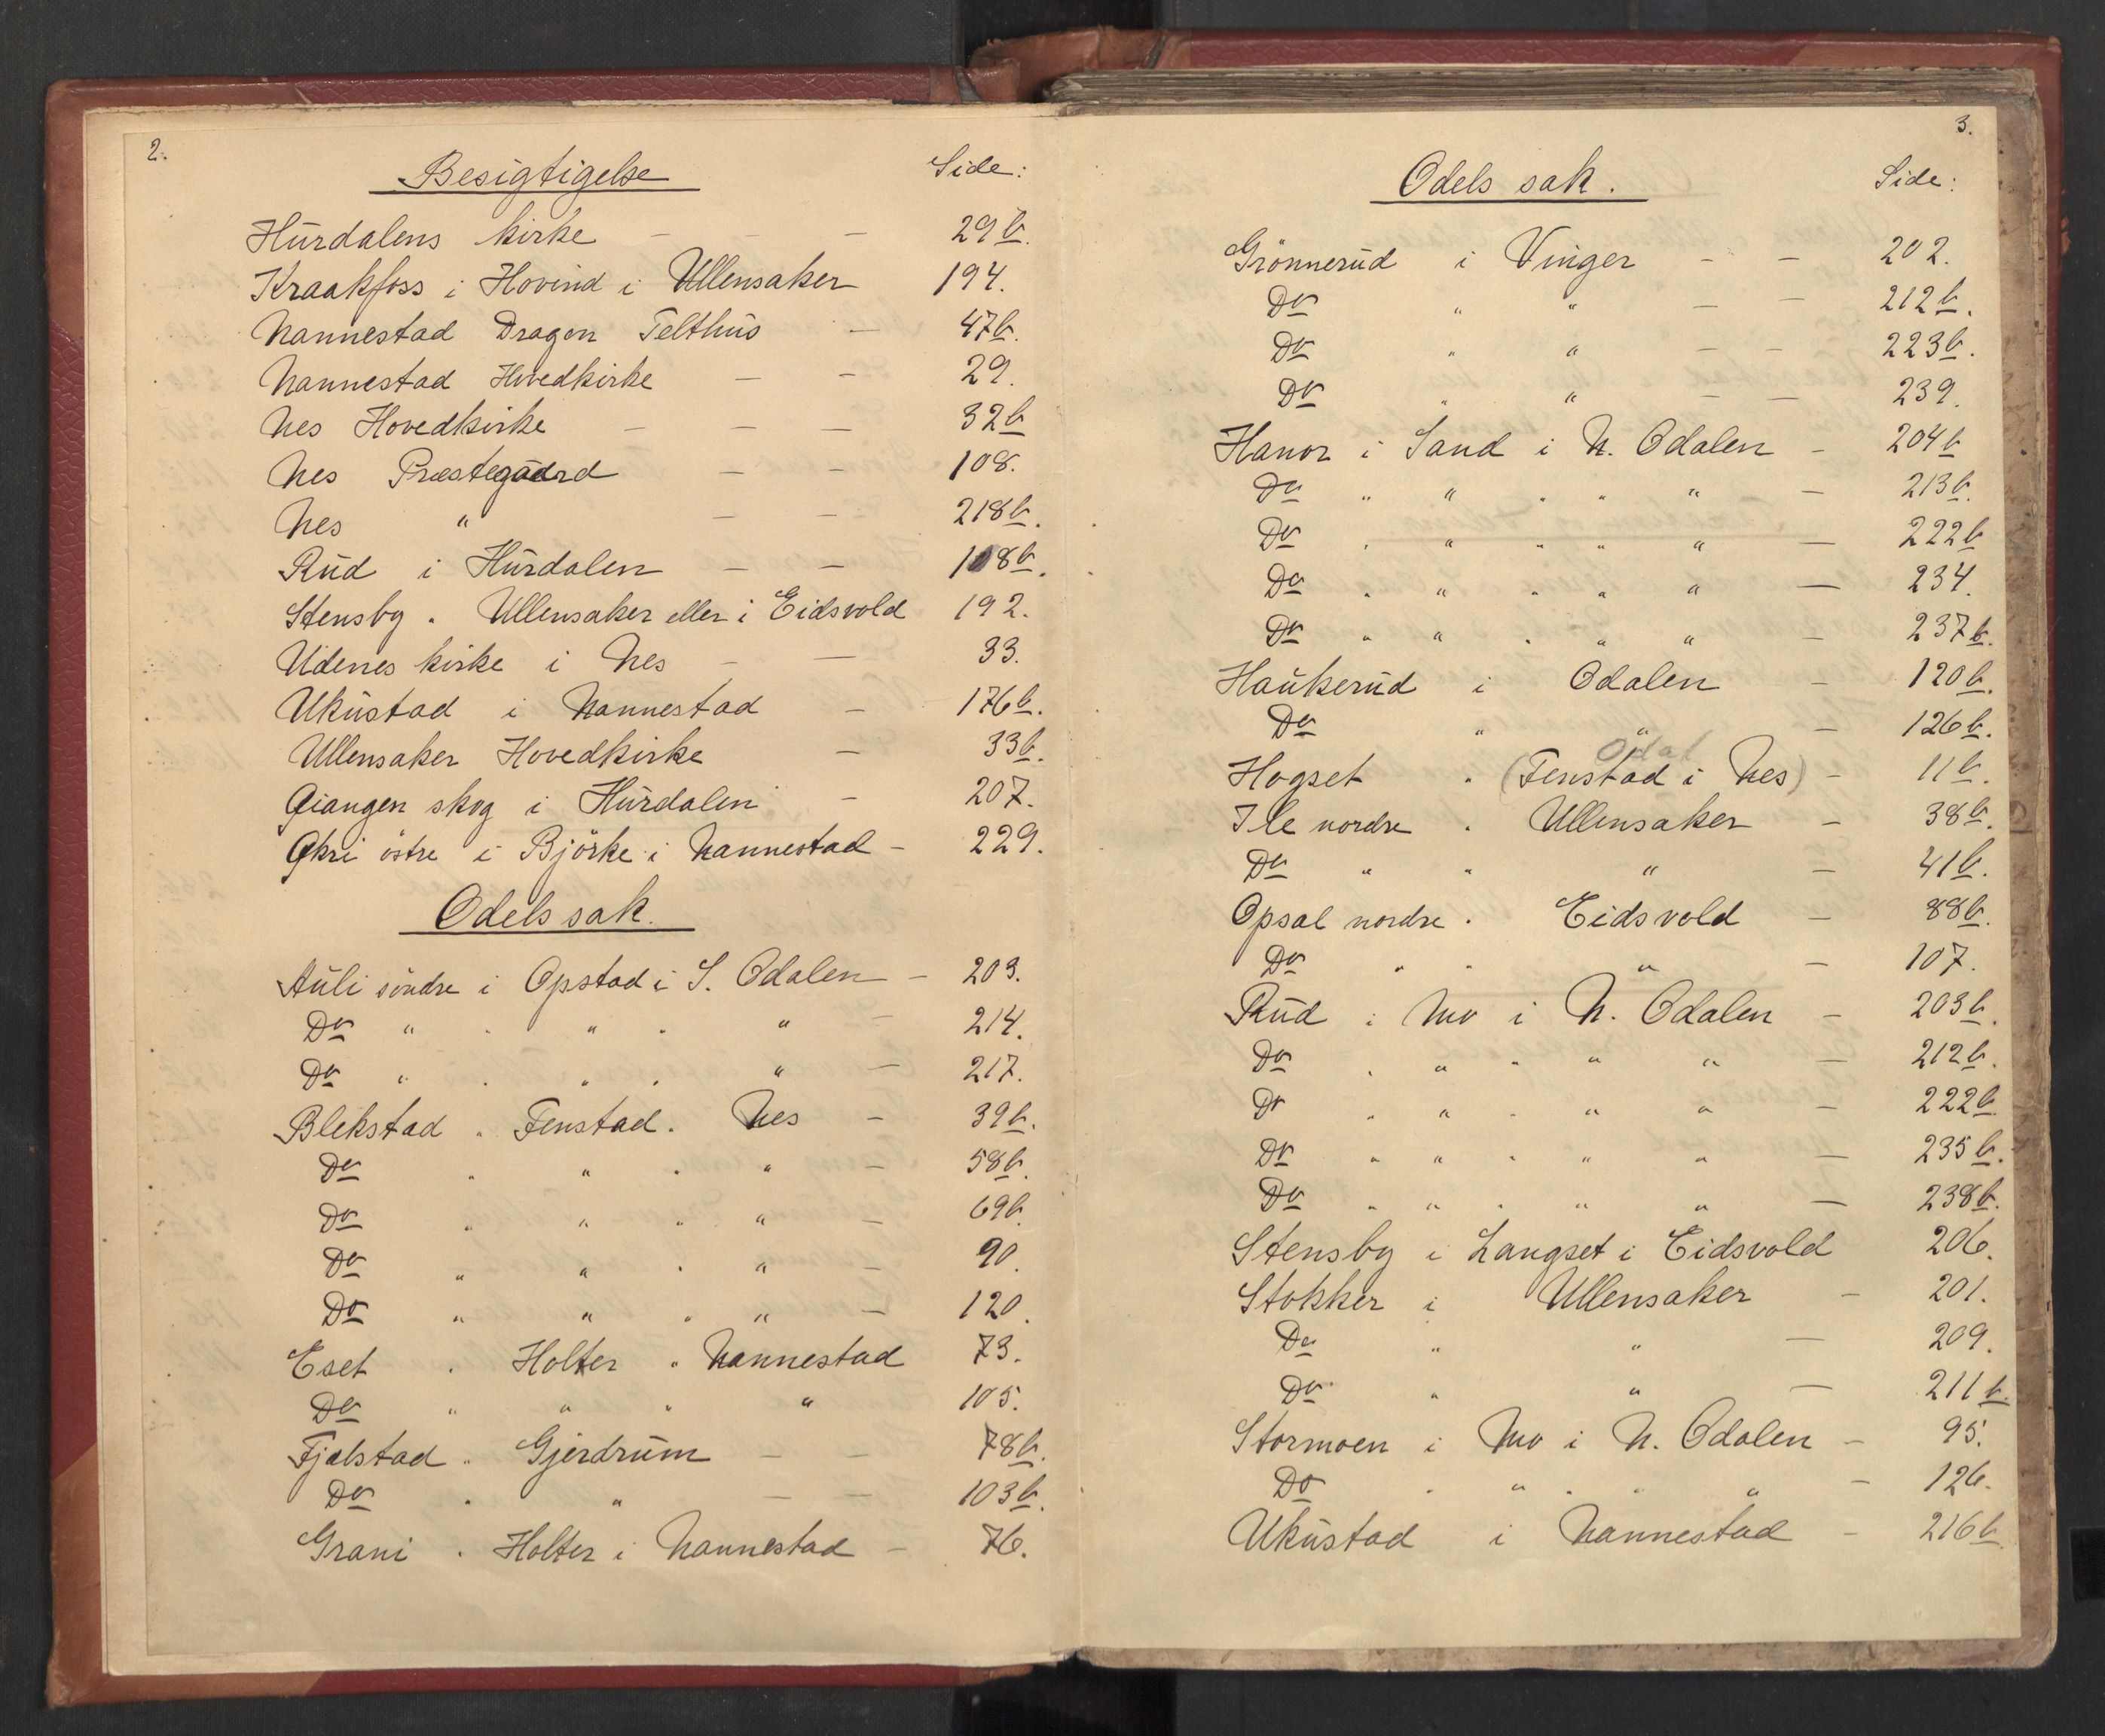 2.
Besigtigelse Side:
Hurdalens kirke — — — 29b.
Kraakfoss i Hovind i Ullensaker 194.
Nannestad Dragon Telthus — 47b.
Nannestad Hovedkirke — — 29.
Nes Hovedkirke — — — 32b
Nes Præstegaard — — 108.
Nes " — — 218b.
Rud i Hurdalen — — 108b.
Stensby . Ullensaker eller i Eidsvold 192.
Udenes kirke i Nes — — 33.
Ukustad i Nannestad — 176b.
Ullensaker Hovedkirke — 33b.
Øiangen skog i Hurdalen — 207.
Økri östre i Björke i Nannestad — 229.
Odels sak.
Auli söndre i Opstad i S. Odalen — 203.
Do " . " . " — 214.
Do " . " . " — 217.
Blekstad . Fenstad . Nes — 39b.
Do . " . " — 58b.
Do " " " " — 69b.
Do " " . " — 90.
Do " " " " — 120.
Eset . Holter " Nannestad 73.
Do " " " " 105.
Fjelstad . Gjerdrum — — 78b.
Do . " — — 103b.
Grani . Holter i Nannestad — 76.
3.
Odels sak. Side:
Grönnerud i Vinger — — 202.
Do " " — — 212b.
Do " " — — 223b.
Do " " — — 239.
Hanor i Sand i N. Odalen — 204b
Do " " " " " — 213b.
Do . " " " " — 222b
Do . " . " " — 234.
Do " " . " " — 237b.
Haukerud i Odalen — 120b.
Do " " — 126b.
Odal
Hogset . (Fenstad i Nes) — 11b.
Ile nordre . Ullensaker — 38b.
Do " " " — 41b.
Opsal nordre . Eidsvold — 88b.
Do " . " — 107.
Rud i Mo i N. Odalen — 203b.
Do . " " " " — 212b.
Do . " . " " — 222b.
Do " " " " " — 235b.
Do . " . " " — 238b.
Stensby i Langset i Eidsvold 206.
Stokker i Ullensaker — 201.
Do " " — 209.
Do " " — 211b.
Stormoen i Mo i N. Odalen — 95.
Do . " . . " — 126.
Ukustad i Nannestad — 216b.